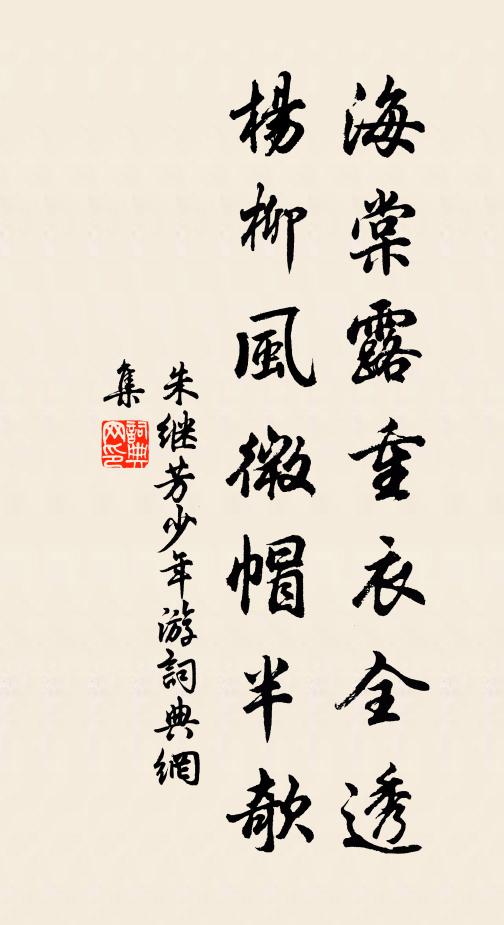 海棠露重衣全透
楊柳風微帽半欹
朱继芳少年游詞典網
集
詞典
网印